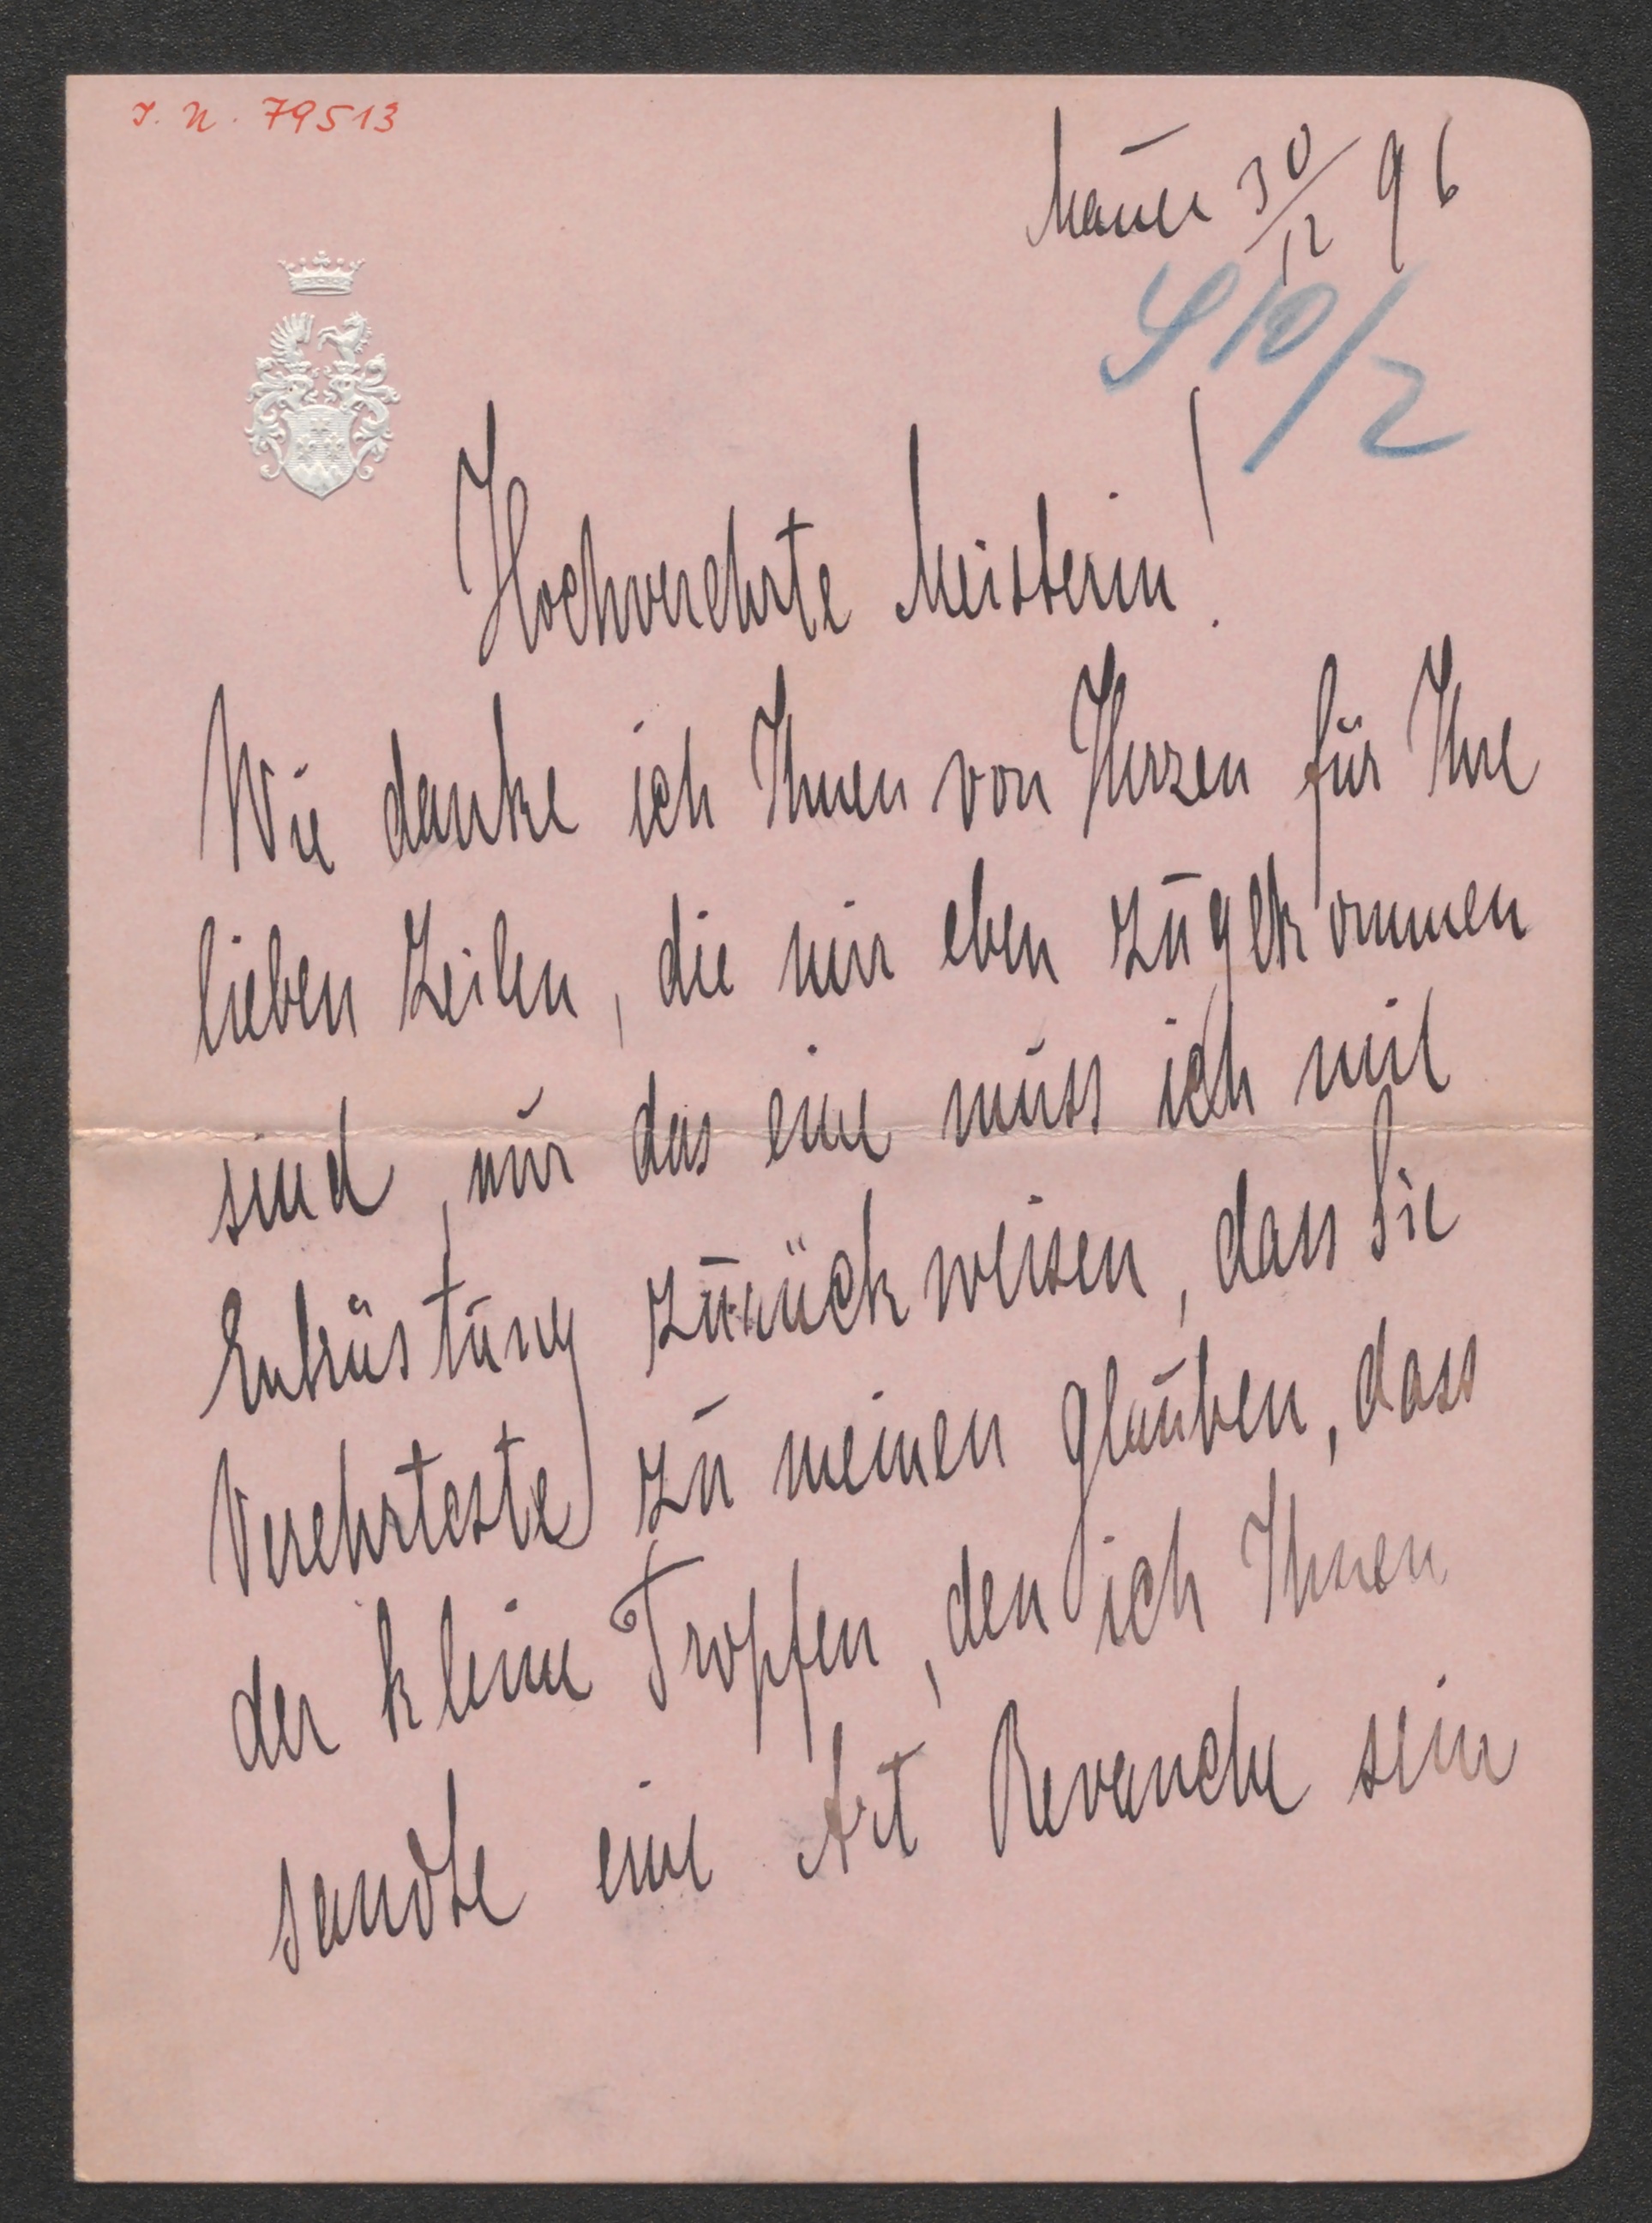 I. N. 79513
Mauer 30/12 96
10/2
Hochverehrte Meisterin!
Wie danke ich Ihnen von Herzen für Ihre
lieben Zeilen, die mir eben zugekommen
sind, nur das eine muss ich mit
Entrüstung zurückweisen, dass Sie
Verehrteste zu meinen glauben, dass
der kleine Tropfen, den ich Ihnen
sandte eine Art Revanche sein